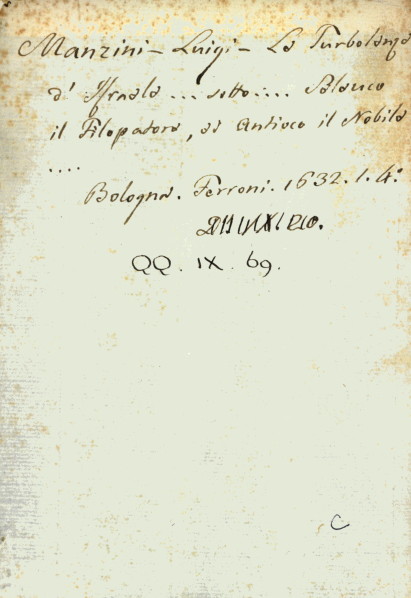 Manzini - Luigi - Le Turbolenze
d' Israele ... sotto .... Seleuco
il Filopatore, ed Antioco il Nobile
....
Bologna. Ferroni. 1632. 1. 4°
QQ. IX. 69.
C